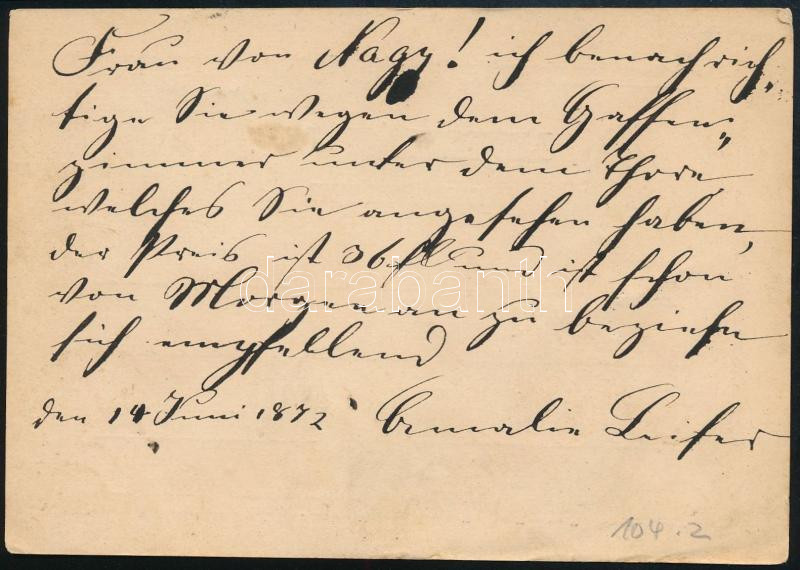 Frau von Nagy! ich benachrich„
tige Sie wegen dem Gassen„
zimmer unter dem Thore,
welches Sie angesehen haben,
der Preis ist 36 fl und ist schon
von Morgen an zu beziehn
sich empfellend
den 14 Juni 1872 Amalie
darabanth
104.2